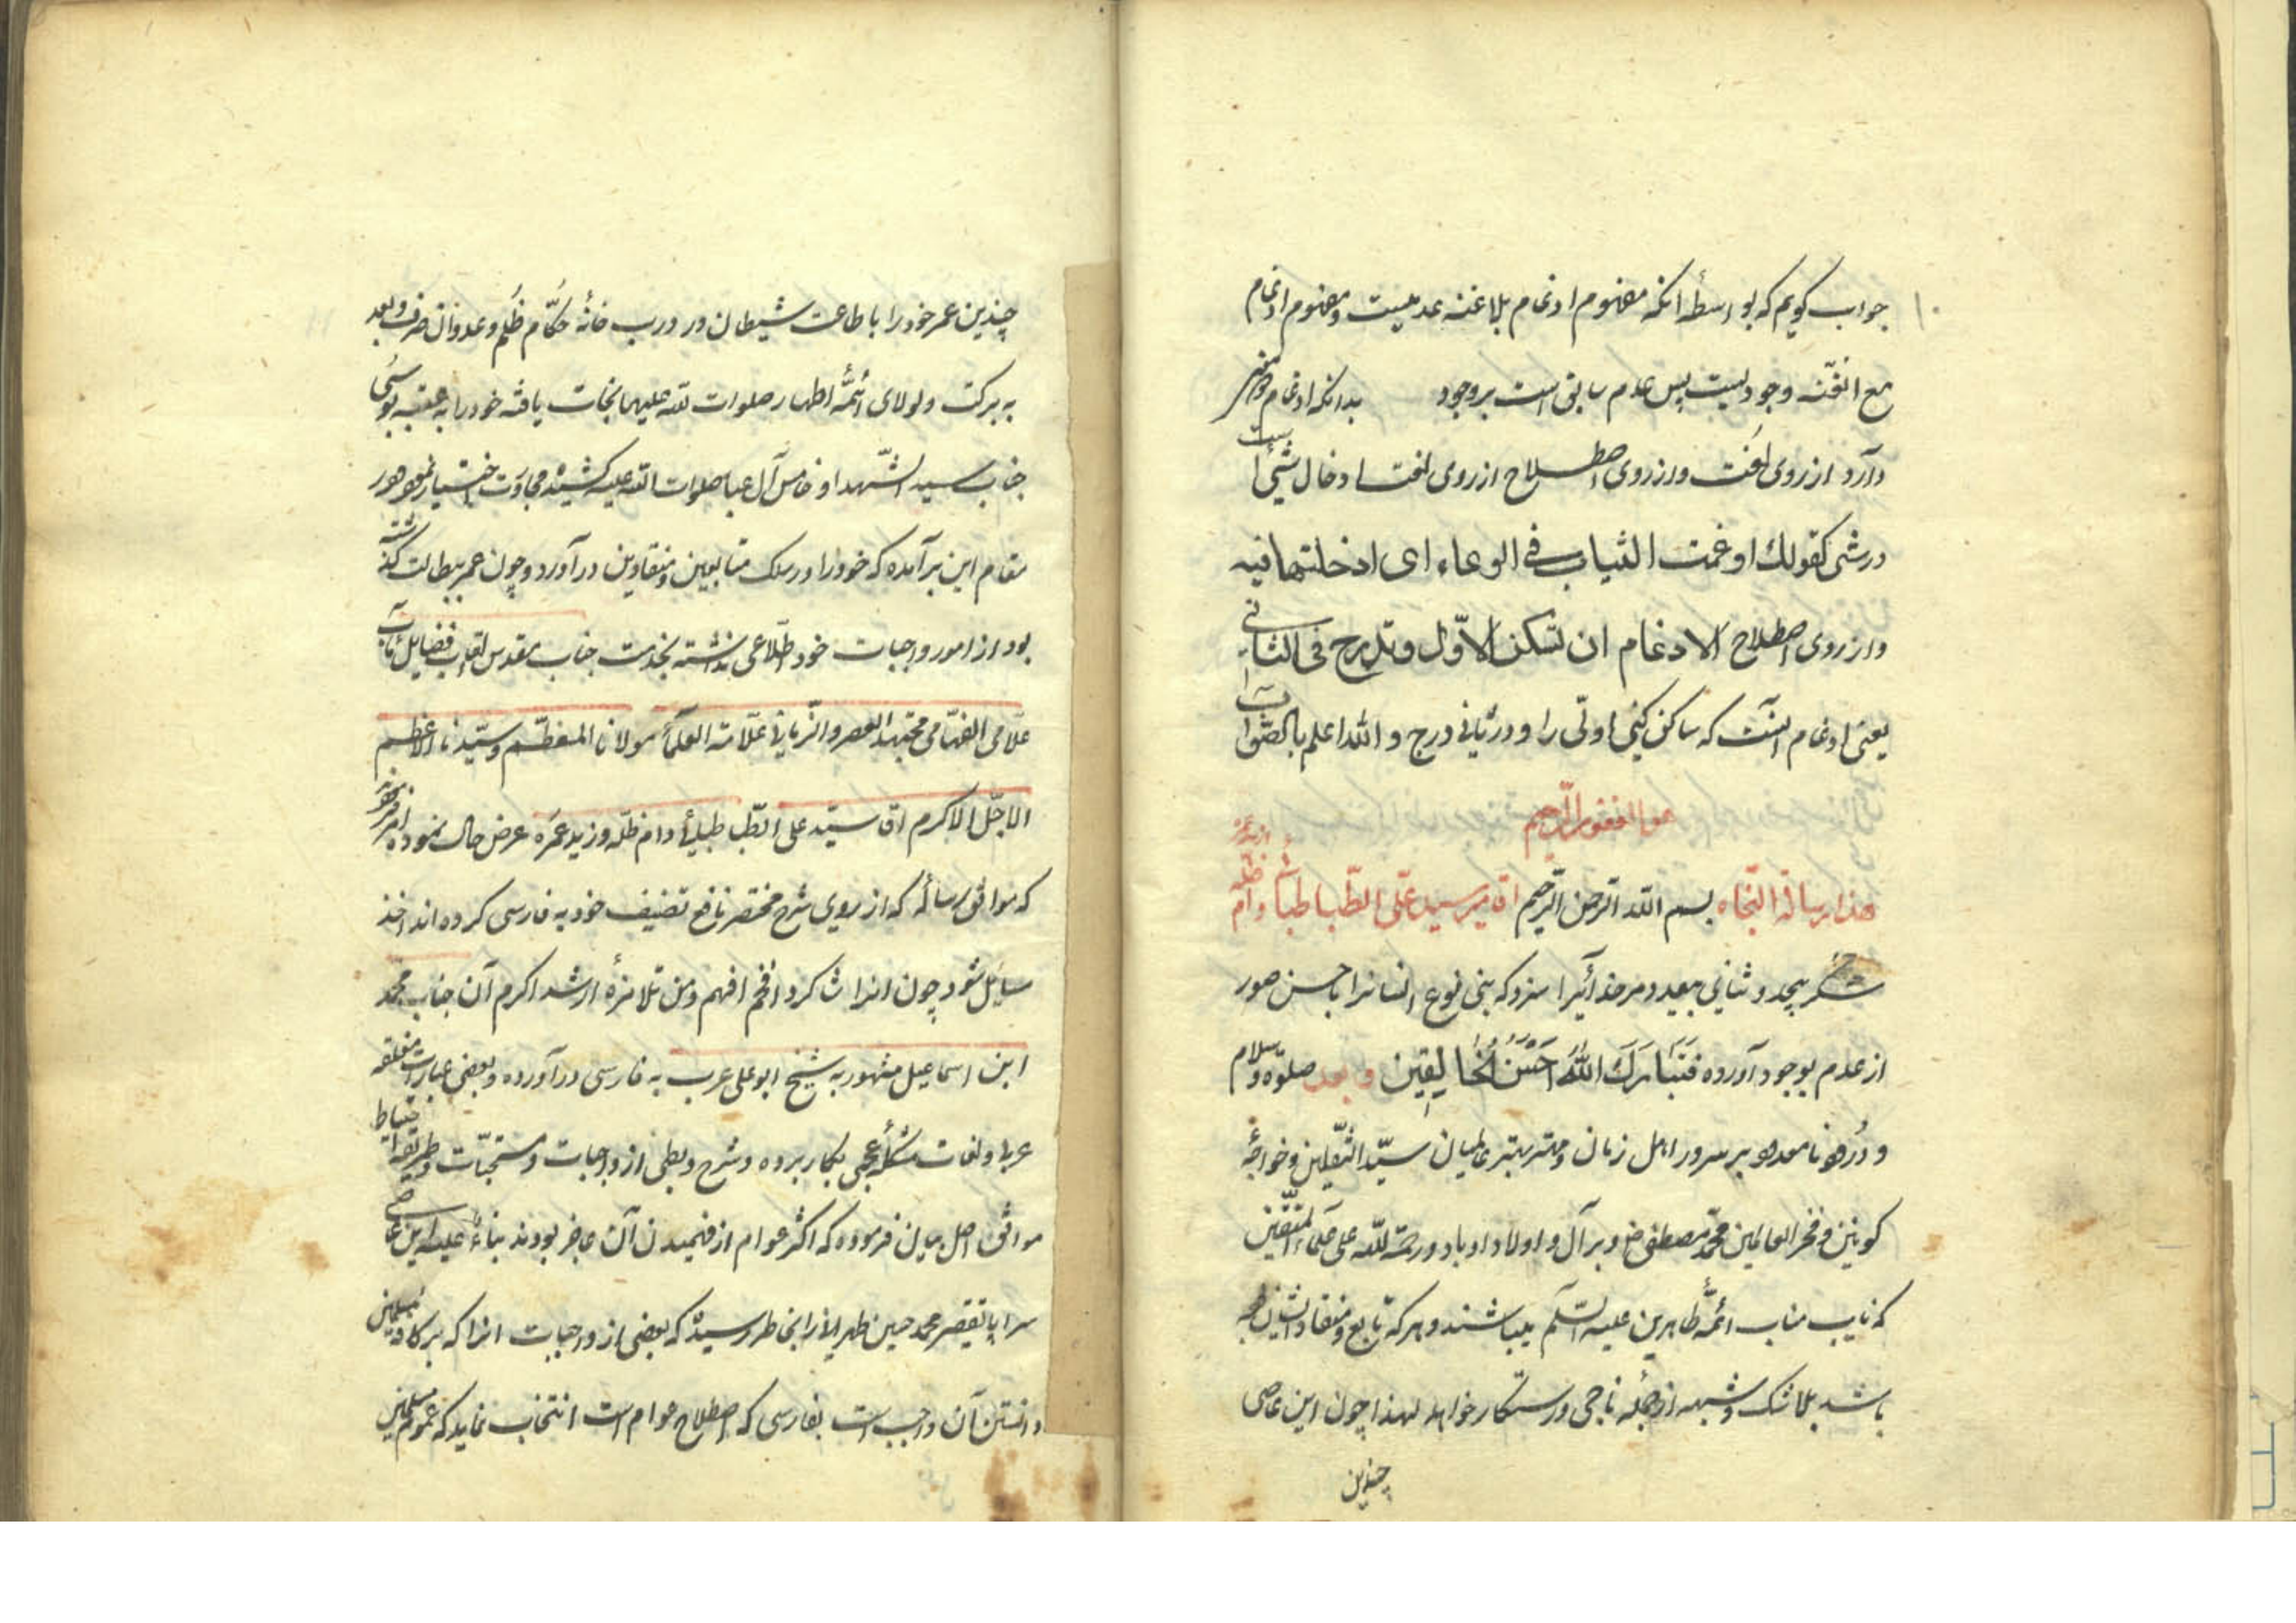 جواب کویم که بواسطهٔ انکه مفهوم ادغام بلاغنه عدمیست و مفهوم ادغام
مع الغنّه وجودیست پس عدم سابق است بر وجود بدانکه ادغام دو معنی
دارد از روی لغت و از روی اصطلاح از روی لغت ادخال شیئی است
در شی کقولك ادغمت الثیاب فی الوعاء ای ادخلتها فیه
و از روی اصطلاح الادغام ان تسکن الاوّل و تدرج فی الثانی
یعنی ادغام انست که ساکن کنی اولی را و در ثانی درج و الله اعلم بالصّواب
هو الغفور الرّحیم
هذا رسالة النّجاه بسم الله الرّحمن الرّحیم اقا میر سید علی الطّباطبائی دام ظلّه
شکر بیحد و ثنای بیعدد مر خدائیرا سزد که بنی نوع انسانرا باحسن صور
از عدم بوجود آورده فَتَبَارَكَ اللّهُ اَحْسَنُ الْخَالِقِین و بعد صلوة و سلام
و دُرود نامعدود بر سرور اهل زمان و مهتر و بهتر عالمیان سیّد الثّقلین و خواجهٔ
کونین و فخر العالمین محمّد مصطفی ص و بر آل و اولاد او باد و رحمة اللّه علی علماء المتّقین
که نایب مناب ائمّهٔ طاهرین علیه السّلم میباشند و هر که تابع و منقاد ایشان
باشد بلا شک و شبهه از جمله ناجی و رستکار خواهد لهذا چون این عاصی
چندین
چندین عمر خود را باطاعت شیطان و در درب خانهٔ حکّام ظلم و عدوان صرف و بعد
به برکت و لولای ائمّه اطهار صلوات اللّه علیهم نجات یافته خود را به عتبه بوسی
جناب سید الشّهدا و خامس آل عبا صلوات اللّه علیه کشیده مجاورت اختیار نمود و در
مقام این برآمده که خود را در سلک متابعین و منقادین درآورد و چون عمر ببطالت کذشته
بود از امور واجبات خود اطّلاعی نداشته بخدمت جناب مقدس القاب فضایل مآب
علّامی الفهّامی مجتهد العصر و الزّمانی علّامة العلماء مولانا المعظّم و سیّدنا الاعظم
الاجلّ الاکرم اقا سیّد علی الطّباطبائی دام ظلّه و زید عمره عرض حال نموده امر فرمودند
که موافق رساله که از روی شرح مختصر نافع تصنیف خود به فارسی کرده اند اخذ
مسایل شود چون انرا شاکرد افخم افهم و من تلامزهٔ ارشد اکرم آن جناب محمّد
ابن اسماعیل مشهور به شیخ ابو علی عرب به فارسی درآورده و بعضی عبارات مغلقه
عربی و لغات مشکله عجمی بکار برده و شرح و بطی از واجبات و مستحبّات و طریقه احتیاط
موافق اصل بیان فرموده که اکثر عوام از فهمیدن آن عاجز بودند بناءً علیه این عاصی
سراپا تقصیر محمد حسین را بخاطر رسیده که بعضی از واجبات انرا که بر کافه مسلمین
دانستن آن واجب است بفارسی که اصطلاح عوام است انتخاب نماید که عموم مسلمین